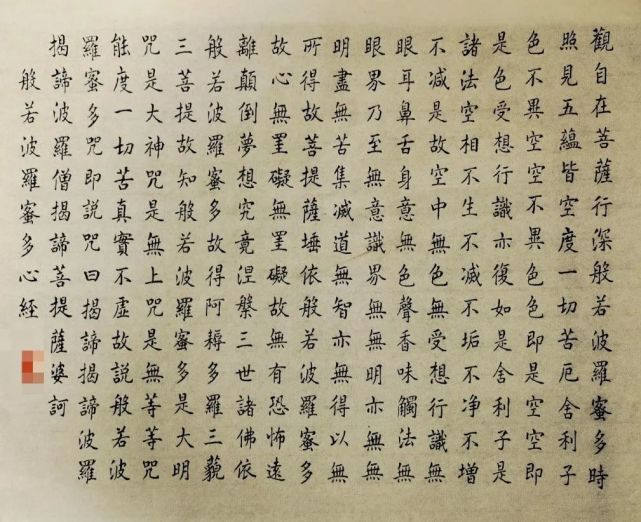 觀自在菩薩行深般若波羅蜜多時
照見五蘊皆空度一切苦厄舍利子
色不異空空不異色色即是空空即
是色受想行識亦復如是舍利子是
諸法空相不生不滅不垢不净不增
不减是故空中無色無受想行識無
眼耳鼻舌身意無色聲香味觸法無
眼界乃至無意識界無無明亦無無
明盡無苦集滅道無智亦無得以無
所得故菩提薩埵依般若波羅蜜多
故心無罣礙無罣礙故無有恐怖遠
離顛倒夢想究竟涅槃三世諸佛依
般若波羅蜜多故得阿耨多羅三藐
三菩提故知般若波羅蜜多是大明
咒是大神咒是無上咒是無等等咒
能度一切苦真實不虛故説般若波
羅蜜多咒即説咒曰揭諦揭諦波羅
揭諦波羅僧揭諦菩提薩婆訶
般若波羅蜜多心経